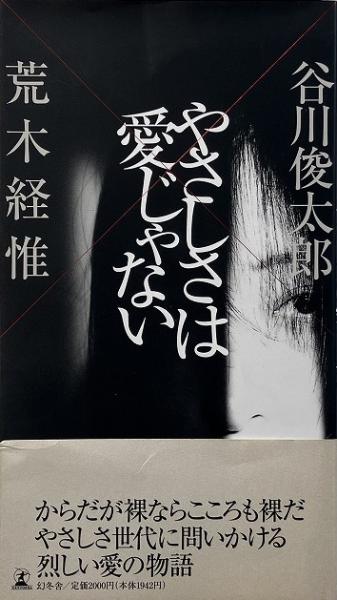 谷川俊太郎
やさしさは
愛じゃない
荒木経惟
からだが裸ならこころも裸だ
やさしさ世代に問いかける
烈しい愛の物語
幻冬舎/定価2000円(本体1942円)